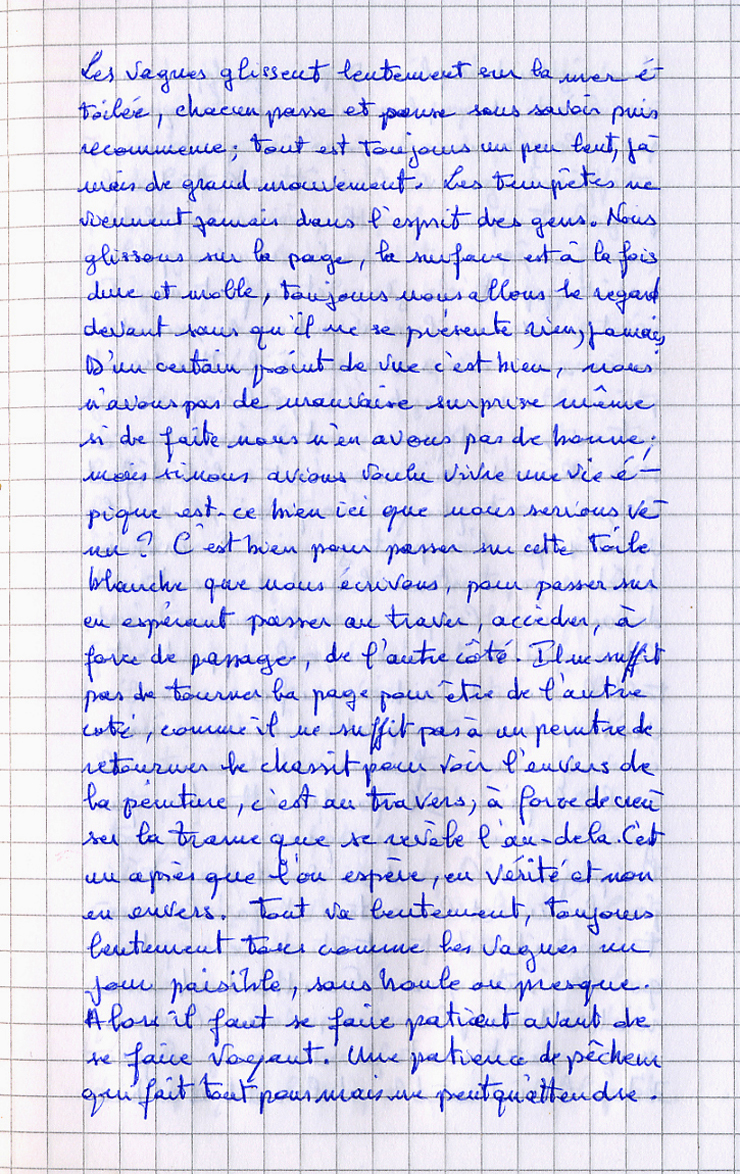 Les vagues glissent lentement sur la mer é
toilée, chacun passe et pense sans savoir puis
recommence; tout est toujours un peu lent, ja
mais de grand mouvement. Les tempêtes ne
viennent jamais dans l'esprit des gens. Nous
glissons sur la page, la surface est à la fois
dure et noble, toujours nous allons le regard
devant sans qu'il ne se présente rien, jamais,
D'un certain point de vue c'est bien, nous
n'avons pas de mauvaise surprise même
si de faite nous n'en avons pas de bonne;
mais si nous avions voulu vivre une vie é-
pique est-ce bien ici que nous serions ve
nu ? C'est bien pour passer sur cette toile
blanche que nous écrivons, pour passer sur
en espérant passer au traver, accèder, à
force de passage, de l'autre côté. Il ne suffit
pas de tourner la page pour être de l'autre
coté, comme il ne suffit pas à un peintre de
retourner le chassit pour voir l'envers de
la peinture, c'est au travers, à force de creu
ser la trame que se revèle l'au-dela. C'est
un après que l'on espère, en vérité et non
en envers. Tout va lentement, toujours
lentement comme les vagues un
jour paisible, sans houle ou presque.
Alors il faut se faire patient avant de
se faire voyant. Une patience de pêcheur
qui fait tout pour mais ne peut qu'attendre.